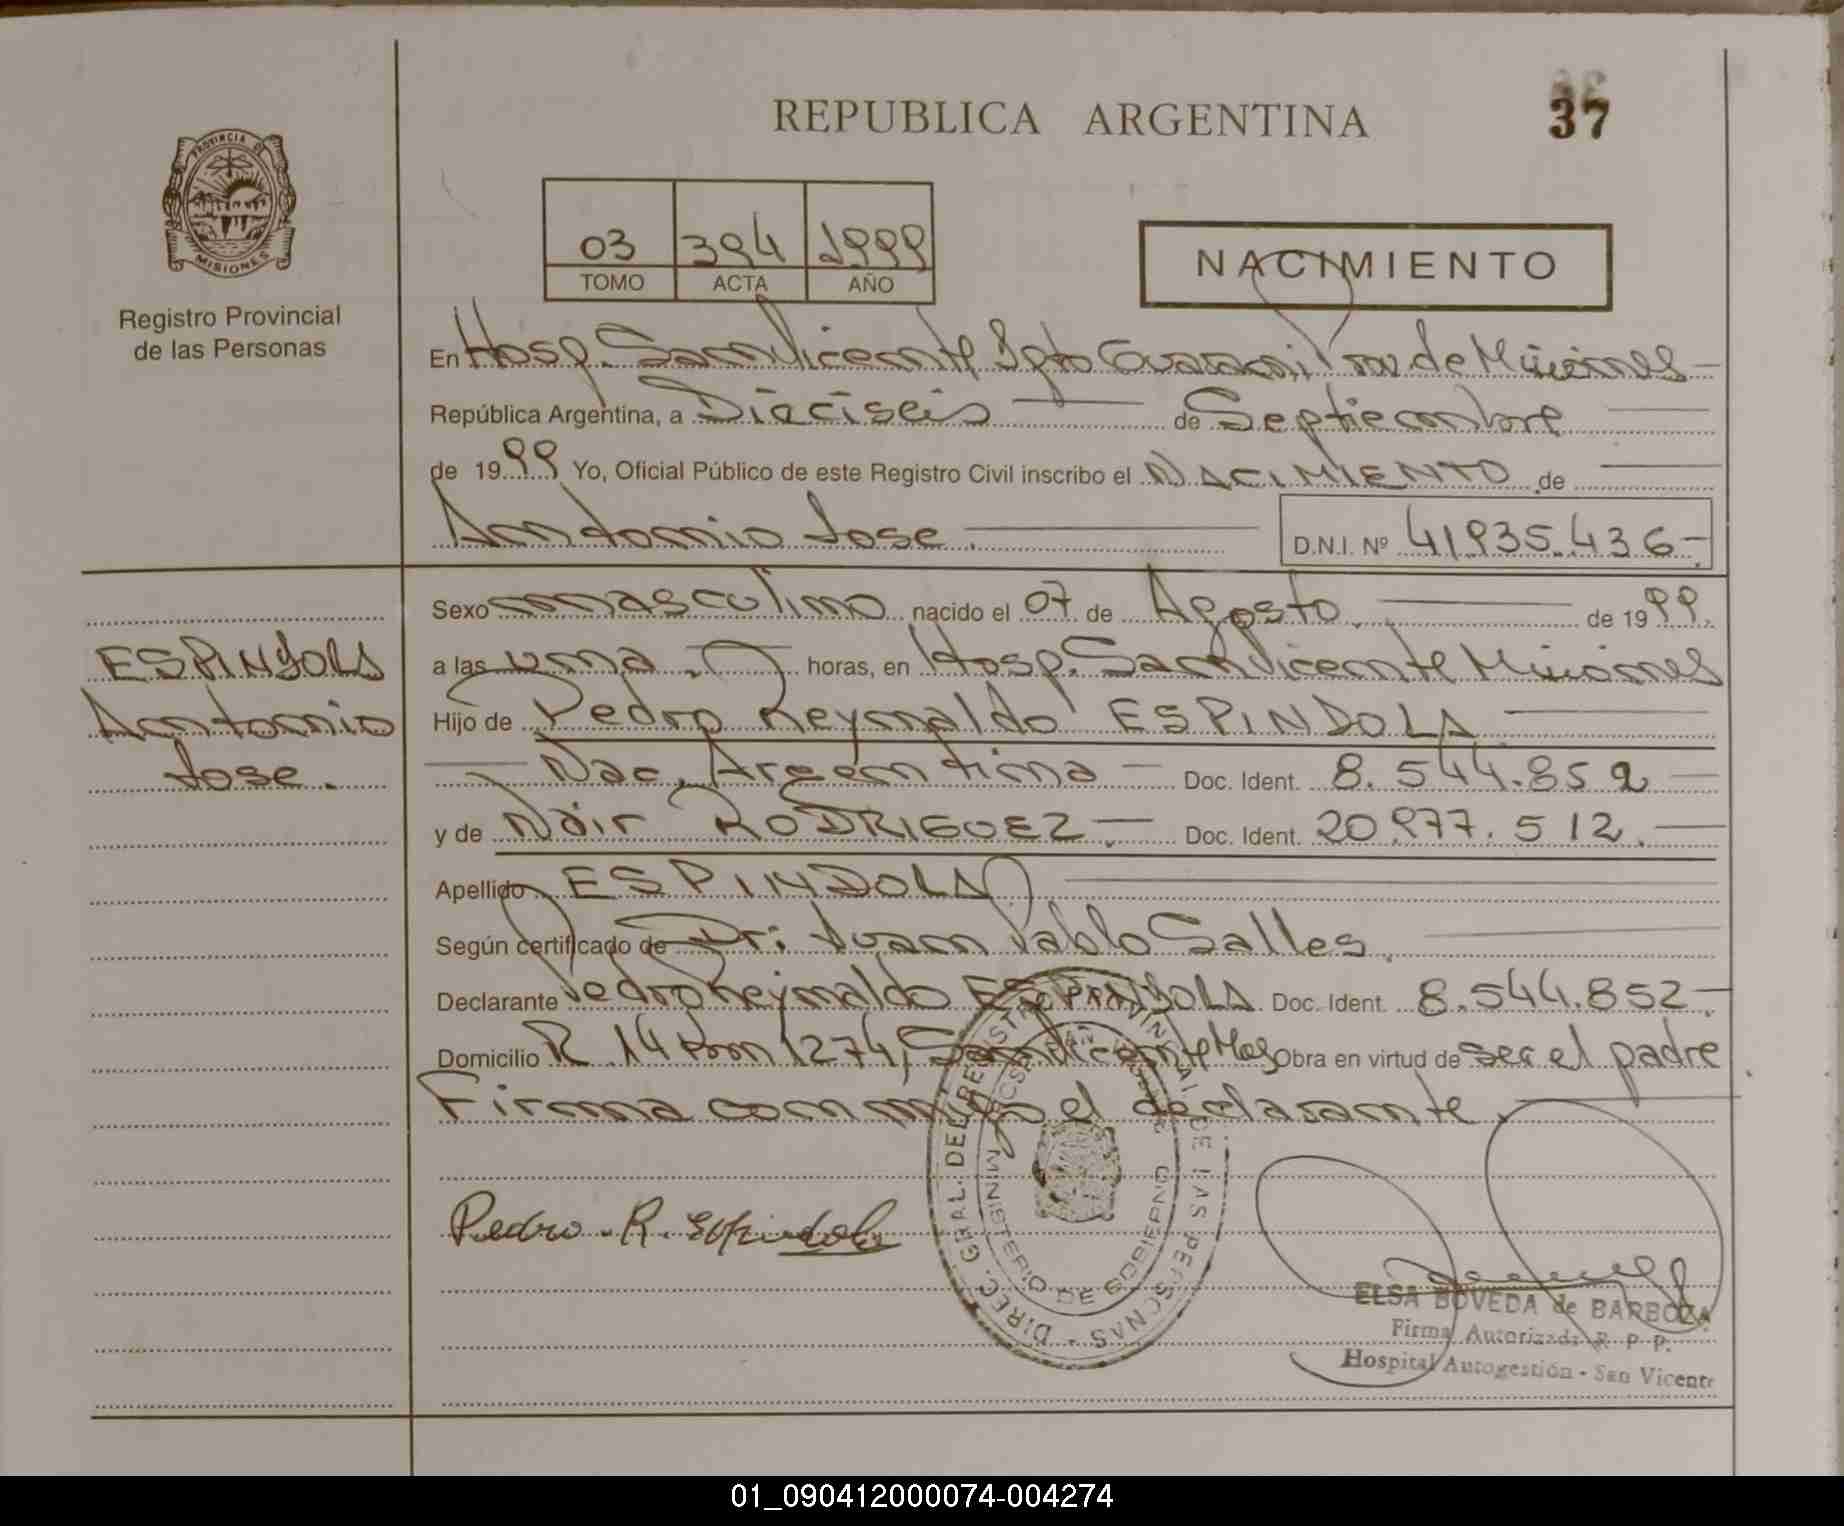 REPUBLICA ARGENTINA
37
PROVINCIA DE
MISIONES
Registro Provincial
de las Personas
03 394 1999
TOMO ACTA AÑO
NACIMIENTO
En Hosp. San Vicente Dpto Guarani Prov de Misiones
República Argentina, a Dieciseis de Septiembre
de 1999 Yo, Oficial Público de este Registro Civil inscribo el NACIMIENTO de
Antonio Jose. D.N.I. Nº 41.935.436
Sexo masculino nacido el 07 de Agosto de 1999.
a las una. horas, en Hosp. San Vicente Misiones
Hijo de Pedro Reynaldo ESPINDOLA
Nac. Argentina Doc. Ident. 8.544.852
y de Nair RODRIGUEZ. Doc. Ident. 20.977.512.
Apellido ESPINDOLA
Según certificado de Dr: Juan Pablo Salles.
Declarante Pedro Reynaldo ESPINDOLA. Doc. Ident. 8.544.852
Domicilio R. 14 Km 1274, San Vicente Mes Obra en virtud de ser el padre
Firma conmigo el declarante.
ESPINDOLA
Antonio
Jose.
Pedro. R. Espindola
DIREC. GRAL. DEL REGISTRO PROVINCIAL DE LAS PERSONAS
MINISTERIO DE GOBIERNO
ELSA BOVEDA de BARBOZA
Firma Autorizada R. P. P.
Hospital Autogestión - San Vicente
01_090412000074-004274